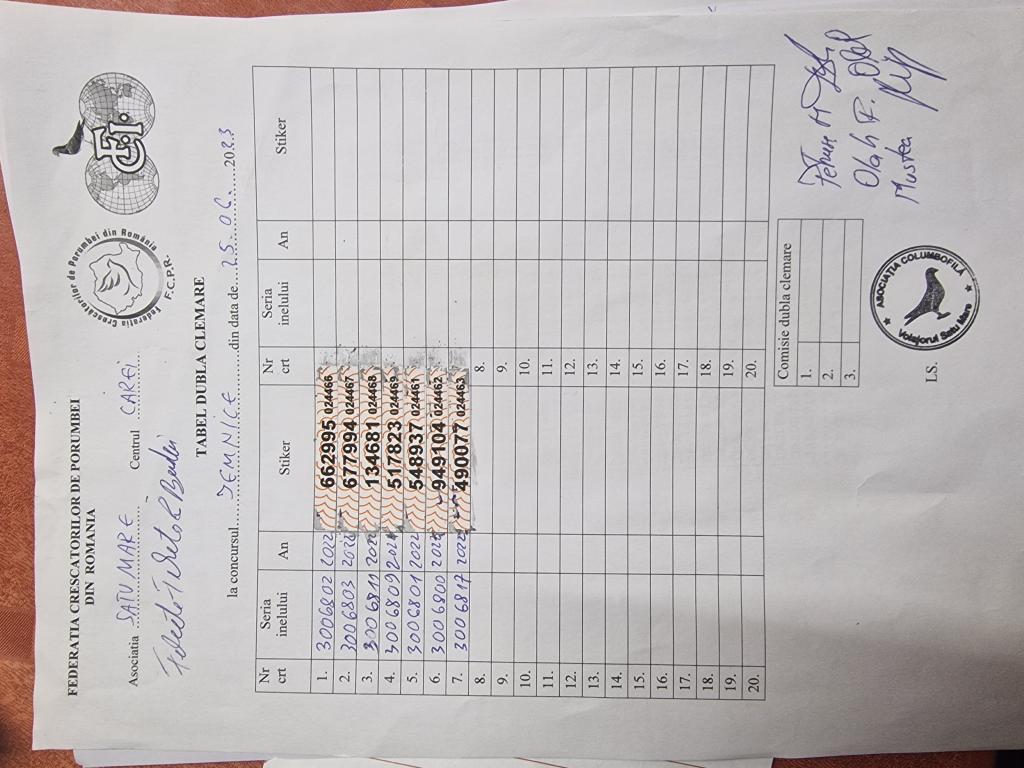 FEDERATIA CRESCATORILOR DE PORUMBEI
DIN ROMANIA
Federatia Crescatorilor de Porumbei din România
F.C.P.R.
FCI
Asociatia SATU MARE Centrul CAREI
TABEL DUBLA CLEMARE
la concursul JEMNICE din data de 25.06. 2023
Nr crt Seria inelului An Stiker Nr crt Seria inelului An Stiker
1. 3006802 2022 662995 024466 1.
2. 3006803 677994 024467 2.
3. 3006811 134681 024468 3.
4. 3006809 517823 024469 4.
5. 3006801 2022 548937 024461 5.
6. 3006800 949104 024462 6.
7. 3006817 490077 024463 7.
8. 8.
9. 9.
10. 10.
11. 11.
12. 12.
13. 13.
14. 14.
15. 15.
16. 16.
17. 17.
18. 18.
19. 19.
20. 20.
Comisie dubla clemare
1.
2.
3.
Olah F.
Mustea
LS.
ASOCIAȚIA COLUMBOFILĂ
Voiajorul Satu Mare